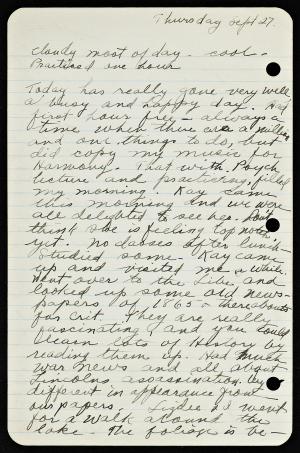 Thursday Sept 27.
Cloudy most of day - cool -
Practiced one hour
Today has really gone very well
a busy and happy day. Had
first hour free - always a
time when there are a million
and one things to do, but
did copy my music for
Harmony. That with Psych
lecture and practicing filled
my morning. Kay came
this morning and we were
all delighted to see her. Don't
think she is feeling top notch
yet. No classes after lunch -
Studied some - Kay came
up and visited me a while.
Went over to the Libe and
looked up some old news-
papers of 1865 - thereabouts
for crit. They are really
fascinating and you could
learn lots of History by
reading them up. Had much
war news and all about
Lincolns assasination. Very
different in appearance from
our papers. and I went
for a walk around the
lake - The foliage is be